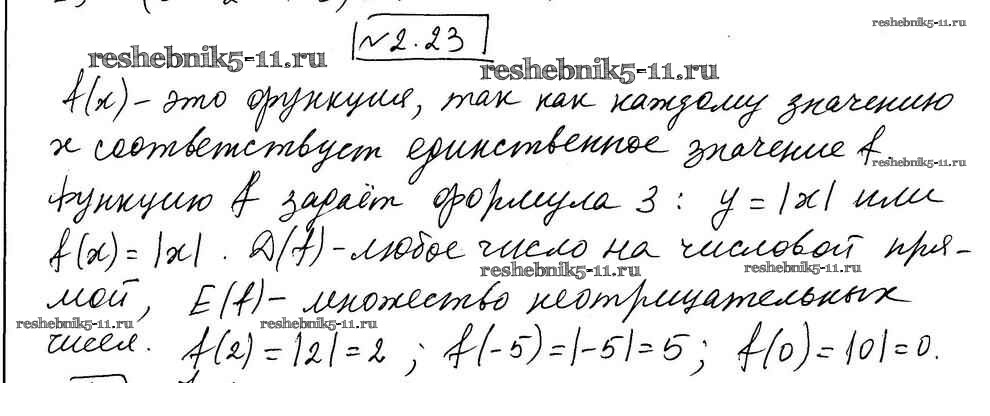 reshebnik5-11.ru
№2.23
reshebnik5-11.ru
reshebnik5-11.ru
f(x) – это функция, так как каждому значению
x соответствует единственное значение f.
reshebnik5-11.ru
Функцию f задаёт формула 3: y = |x| или
f(x) = |x|. D(f) – любое число на числовой пря-
reshebnik5-11.ru
reshebnik5-11.ru
мой, E(f) – множество неотрицательных
reshebnik5-11.ru
reshebnik5-11.ru
чисел. f(2) = |2| = 2; f(-5) = |-5| = 5; f(0) = |0| = 0.